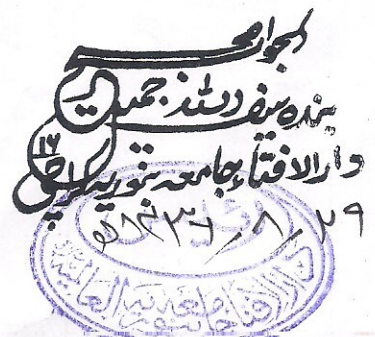 الجواب صحیح
بندہ سیف اللہ جمیل
دار الافتاء جامعہ بنوریہ کراچی ۱۶
۲۹/۸/۱۴۳۶ھ
دار الافتاء جامعہ بنوریہ العالمیہ